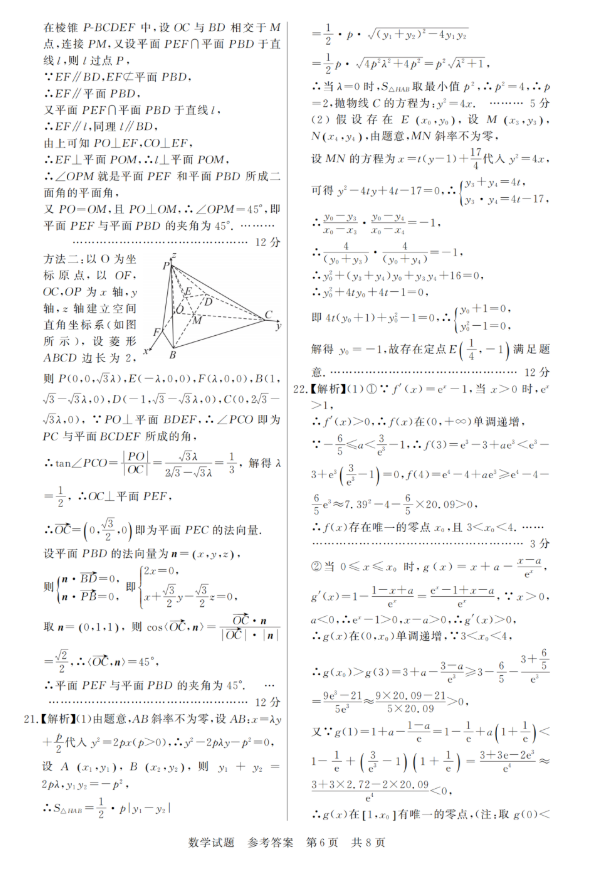 在棱锥 P-BCDEF 中,设 OC 与 BD 相交于 M
点,连接 PM,又设平面 PEF∩平面 PBD 于直
线 l,则 l 过点 P,
∵EF∥BD,EF⊄平面 PBD,
∴EF∥平面 PBD,
又平面 PEF∩平面 PBD 于直线 l,
∴EF∥l,同理 l∥BD,
由上可知 PO⊥EF,CO⊥EF,
∴EF⊥平面 POM,∴l⊥平面 POM,
∴∠OPM 就是平面 PEF 和平面 PBD 所成二
面角的平面角,
又 PO=OM,且 PO⊥OM,∴∠OPM=45°,即
平面 PEF 与平面 PBD 的夹角为 45°. ………
…………………………………… 12 分
方法二:以 O 为坐
标原点,以 OF,
OC,OP 为 x 轴,y
轴,z 轴建立空间
直角坐标系(如图
所示),设菱形
ABCD 边长为 2,
z
P
E
D
O
M
C
y
F
x
B
则 P(0,0,√3λ),E(-λ,0,0),F(λ,0,0),B(1,
√3-√3λ,0),D(-1,√3-√3λ,0),C(0,2√3-
√3λ,0),∵PO⊥平面 BDEF,∴∠PCO 即为
PC 与平面 BCDEF 所成的角,
∴tan∠PCO=|PO|/|OC|=√3λ/(2√3-√3λ)=1/3,解得 λ
=1/2,∴OC⊥平面 PEF,
∴OC→=(0,√3/2,0)即为平面 PEC 的法向量.
设平面 PBD 的法向量为 n=(x,y,z),
则{n·BD→=0, n·PB→=0, 即{2x=0, x+√3/2y-√3/2z=0,
取 n=(0,1,1),则 cos⟨OC→,n⟩=OC→·n/(|OC→|·|n|)
=√2/2,∴⟨OC→,n⟩=45°,
∴平面 PEF 与平面 PBD 的夹角为 45°. …
…………………………………… 12 分
21.【解析】(1)由题意,AB 斜率不为零,设 AB:x=λy
+p/2代入 y²=2px(p>0),∴y²-2pλy-p²=0,
设 A (x₁,y₁), B (x₂,y₂), 则 y₁ + y₂ =
2pλ,y₁y₂=-p²,
∴S△HAB=1/2·p|y₁-y₂|
=1/2·p·√((y₁+y₂)²-4y₁y₂)
=1/2p·√(4p²λ²+4p²)=p²√(λ²+1),
∴当 λ=0 时,S△HAB取最小值 p²,∴p²=4,∴p
=2,抛物线 C 的方程为:y²=4x. ……… 5 分
(2) 假设存在 E (x₀,y₀),设 M (x₃,y₃),
N(x₄,y₄),由题意,MN 斜率不为零,
设 MN 的方程为 x=t(y-1)+17/4代入 y²=4x,
可得 y²-4ty+4t-17=0,∴{y₃+y₄=4t, y₃·y₄=4t-17,
∴(y₀-y₃)/(x₀-x₃)·(y₀-y₄)/(x₀-x₄)=-1,
∴4/(y₀+y₃)·4/(y₀+y₄)=-1,
∴y₀²+(y₃+y₄)y₀+y₃y₄+16=0,
∴y₀²+4ty₀+4t-1=0,
即 4t(y₀+1)+y₀²-1=0,∴{y₀+1=0, y₀²-1=0.
解得 y₀=-1,故存在定点 E(1/4,-1)满足题
意. …………………………………… 12 分
22.【解析】(1)①∵f′(x)=eˣ-1,当 x>0 时,eˣ
>1,
∴f′(x)>0,∴f(x)在(0,+∞)单调递增,
∵-6/5≤a<3/e³-1,∴f(3)=e³-3+ae³<e³-
3+e³(3/e³-1)=0,f(4)=e⁴-4+ae³≥e⁴-4-
6/5e³≈7.39²-4-6/5×20.09>0,
∴f(x)存在唯一的零点 x₀,且 3<x₀<4. ……
…………………………………… 3 分
②当 0≤x≤x₀ 时,g(x)=x+a-(x-a)/eˣ,
g′(x)=1-(1-x+a)/eˣ=(eˣ-1+x-a)/eˣ,∵x>0,
a<0,∴eˣ-1>0,x-a>0,∴g′(x)>0,
∴g(x)在(0,x₀)单调递增,∵3<x₀<4,
∴g(x₀)>g(3)=3+a-(3-a)/e³≥3-6/5-(3+6/5)/e³
=(9e³-21)/5e³≈(9×20.09-21)/(5×20.09)>0,
又∵g(1)=1+a-(1-a)/e=1-1/e+a(1+1/e)<
1-1/e+(3/e³-1)(1+1/e)=(3+3e-2e³)/e⁴≈
(3+3×2.72-2×20.09)/e⁴<0,
∴g(x)在[1,x₀]有唯一的零点,(注:取 g(0)<
数学试题 参考答案 第6页 共8页